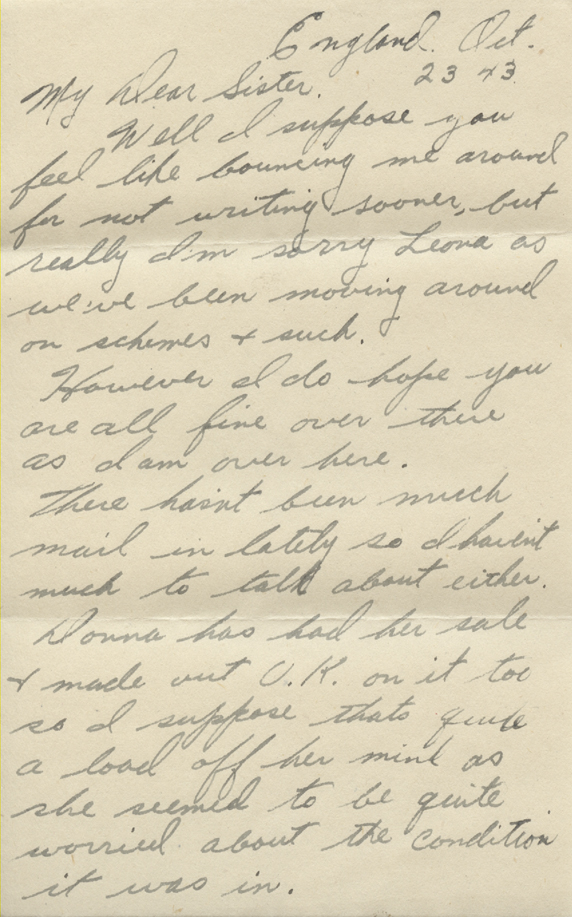 England. Oct.
23 43
My Dear Sister.
Well I suppose you
feel like bouncing me around
for not writing sooner, but
really I'm sorry Leona as
we've been moving around
on schemes + such.
However I do hope you
are all fine over there
as I am over here.
There hasnt been much
mail in lately so I havent
much to talk about either.
Donna has had her sale
+ made out O.K. on it too
so I suppose thats quite
a load off her mind as
she seemed to be quite
worried about the condition
it was in.